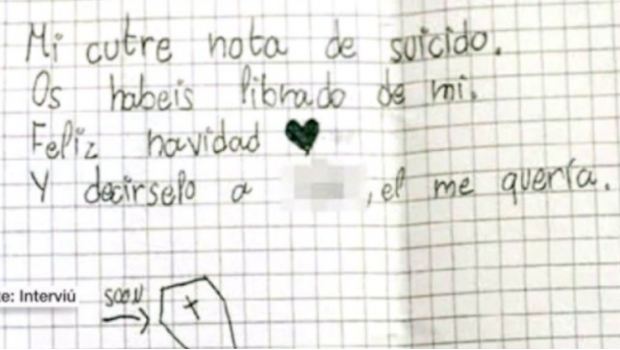 Mi cutre nota de suicido.
Os habeis librado de mi.
Feliz navidad ♥
Y decirselo a , el me quería.
e: Interviú
SOON